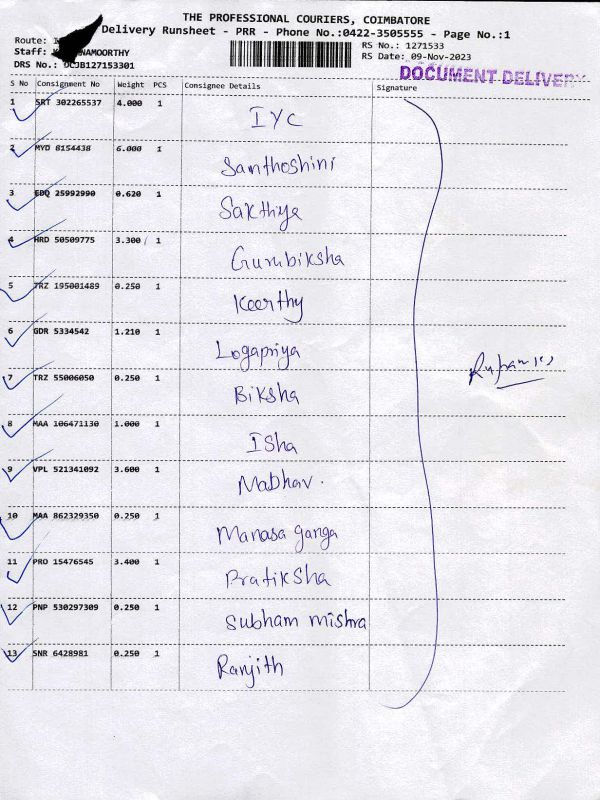 THE PROFESSIONAL COURIERS, COIMBATORE
Delivery Runsheet - PRR - Phone No.:0422-3505555 - Page No.:1
Route:
RS No.: 1271533
Staff: NAMOORTHY
RS Date: 09-Nov-2023
DRS No.: DCJB127153301
DOCUMENT DELIVERY
S No Consignment No Weight PCS Consignee Details Signature
1 SRT 302265537 4.000 1 IYC
2 MYD 8154438 6.000 1 Santhoshini
3 EDQ 25992990 0.620 1 Sakthiya
4 HRD 50509775 3.300 1 Gurubiksha
5 TRZ 195001489 0.250 1 Keerthy
6 GDR 5334542 1.210 1 Logapriya
7 TRZ 55006050 0.250 1 Biksha
8 MAA 106471130 1.000 1 Isha
9 VPL 521341092 3.600 1 Mabhav.
10 MAA 862329350 0.250 1 Manasa ganga
11 PRO 15476545 3.400 1 Pratiksha
12 PNP 530297309 0.250 1 Subham mishra
13 SNR 6428981 0.250 1 Ranjith